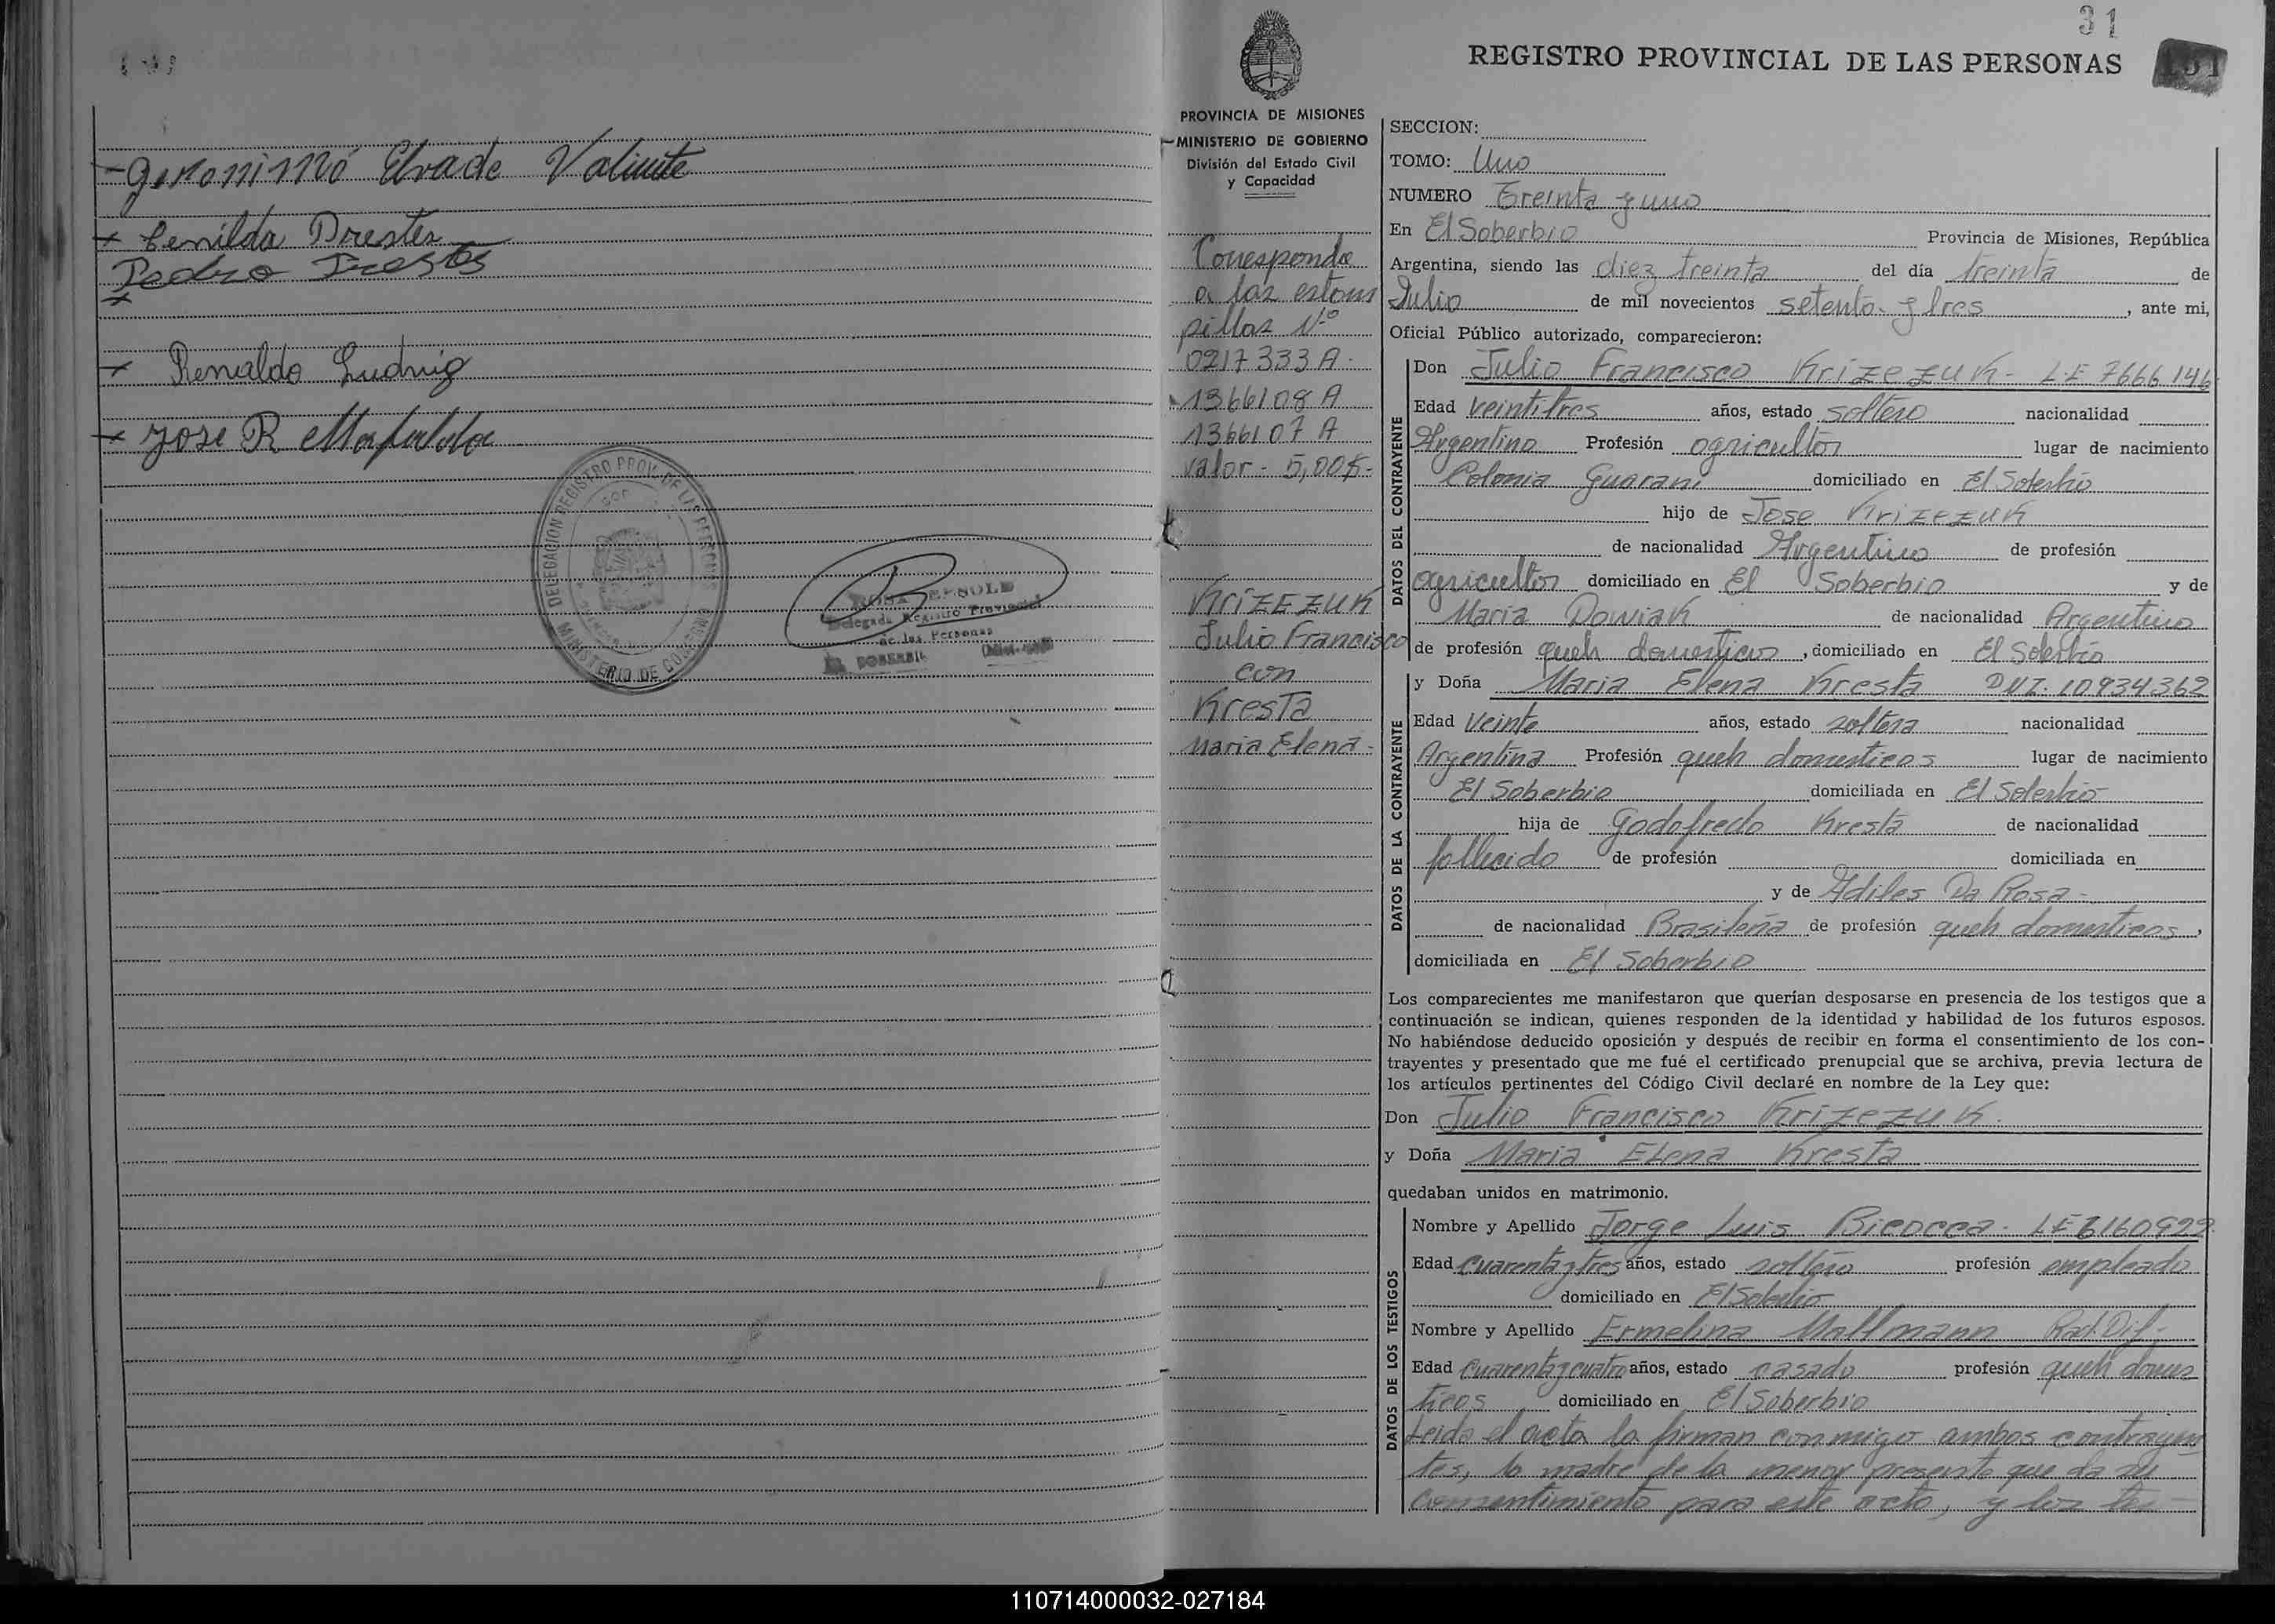 Geronimó Elvade Valiente
x Cenilda Prestes
Pedro Prestes
x
x Renaldo Ludwig
x Jose R
DELEGACION REGISTRO PROV. DE LAS PERSONAS
MINISTERIO DE GOBIERNO
ROSA
Delegada Registro Provincial
de las Personas
31
REGISTRO PROVINCIAL DE LAS PERSONAS
PROVINCIA DE MISIONES
MINISTERIO DE GOBIERNO
División del Estado Civil
y Capacidad
Corresponde
a las estam
pillas Nº
0217333 A -
1366108 A
1366107 A
valor - 5,00$-
KRIZEZUK
Julio Francisco
con
Kresta
Maria Elena -
SECCION:
TOMO: Uno
NUMERO Treinta y uno
En El Soberbio Provincia de Misiones, República
Argentina, siendo las diez treinta del día treinta de
Julio de mil novecientos setenta y tres , ante mi,
Oficial Público autorizado, comparecieron:
DATOS DEL CONTRAYENTE
Don Julio Francisco Krizezuk - LE 7666146
Edad veintitres años, estado soltero nacionalidad
Argentino Profesión agricultor lugar de nacimiento
Colonia Guarani domiciliado en El Soberbio
hijo de Jose Krizezuk
de nacionalidad Argentino de profesión
agricultor domiciliado en El Soberbio y de
Maria Dowiak de nacionalidad Argentina
de profesión queh domesticos , domiciliado en El Soberbio
DATOS DE LA CONTRAYENTE
y Doña Maria Elena Kresta DNI. 10934362
Edad veinte años, estado soltera nacionalidad
Argentina Profesión queh domesticos lugar de nacimiento
El Soberbio domiciliada en El Soberbio
hija de Godofredo Kresta de nacionalidad
fallecido de profesión domiciliada en
y de Adiles Da Rosa -
de nacionalidad Brasileña de profesión queh domesticos ,
domiciliada en El Soberbio
Los comparecientes me manifestaron que querían desposarse en presencia de los testigos que a
continuación se indican, quienes responden de la identidad y habilidad de los futuros esposos.
No habiéndose deducido oposición y después de recibir en forma el consentimiento de los con-
trayentes y presentado que me fué el certificado prenupcial que se archiva, previa lectura de
los artículos pertinentes del Código Civil declaré en nombre de la Ley que:
Don Julio Francisco Krizezuk.
y Doña Maria Elena Kresta
quedaban unidos en matrimonio.
DATOS DE LOS TESTIGOS
Nombre y Apellido Jorge Luis Bicocca - LE
Edad Cuarenta y tres años, estado soltero profesión empleado
domiciliado en El Soberbio
Nombre y Apellido Ermelina Mallmann Rad. Dif.
Edad Cuarenta y cuatro años, estado casada profesión queh domes
ticos domiciliado en El Soberbio
Leida el acta la firman conmigo ambos contrayen
tes, la madre de la menor presente que da su
consentimiento para este acto, y los tes-
110714000032-027184